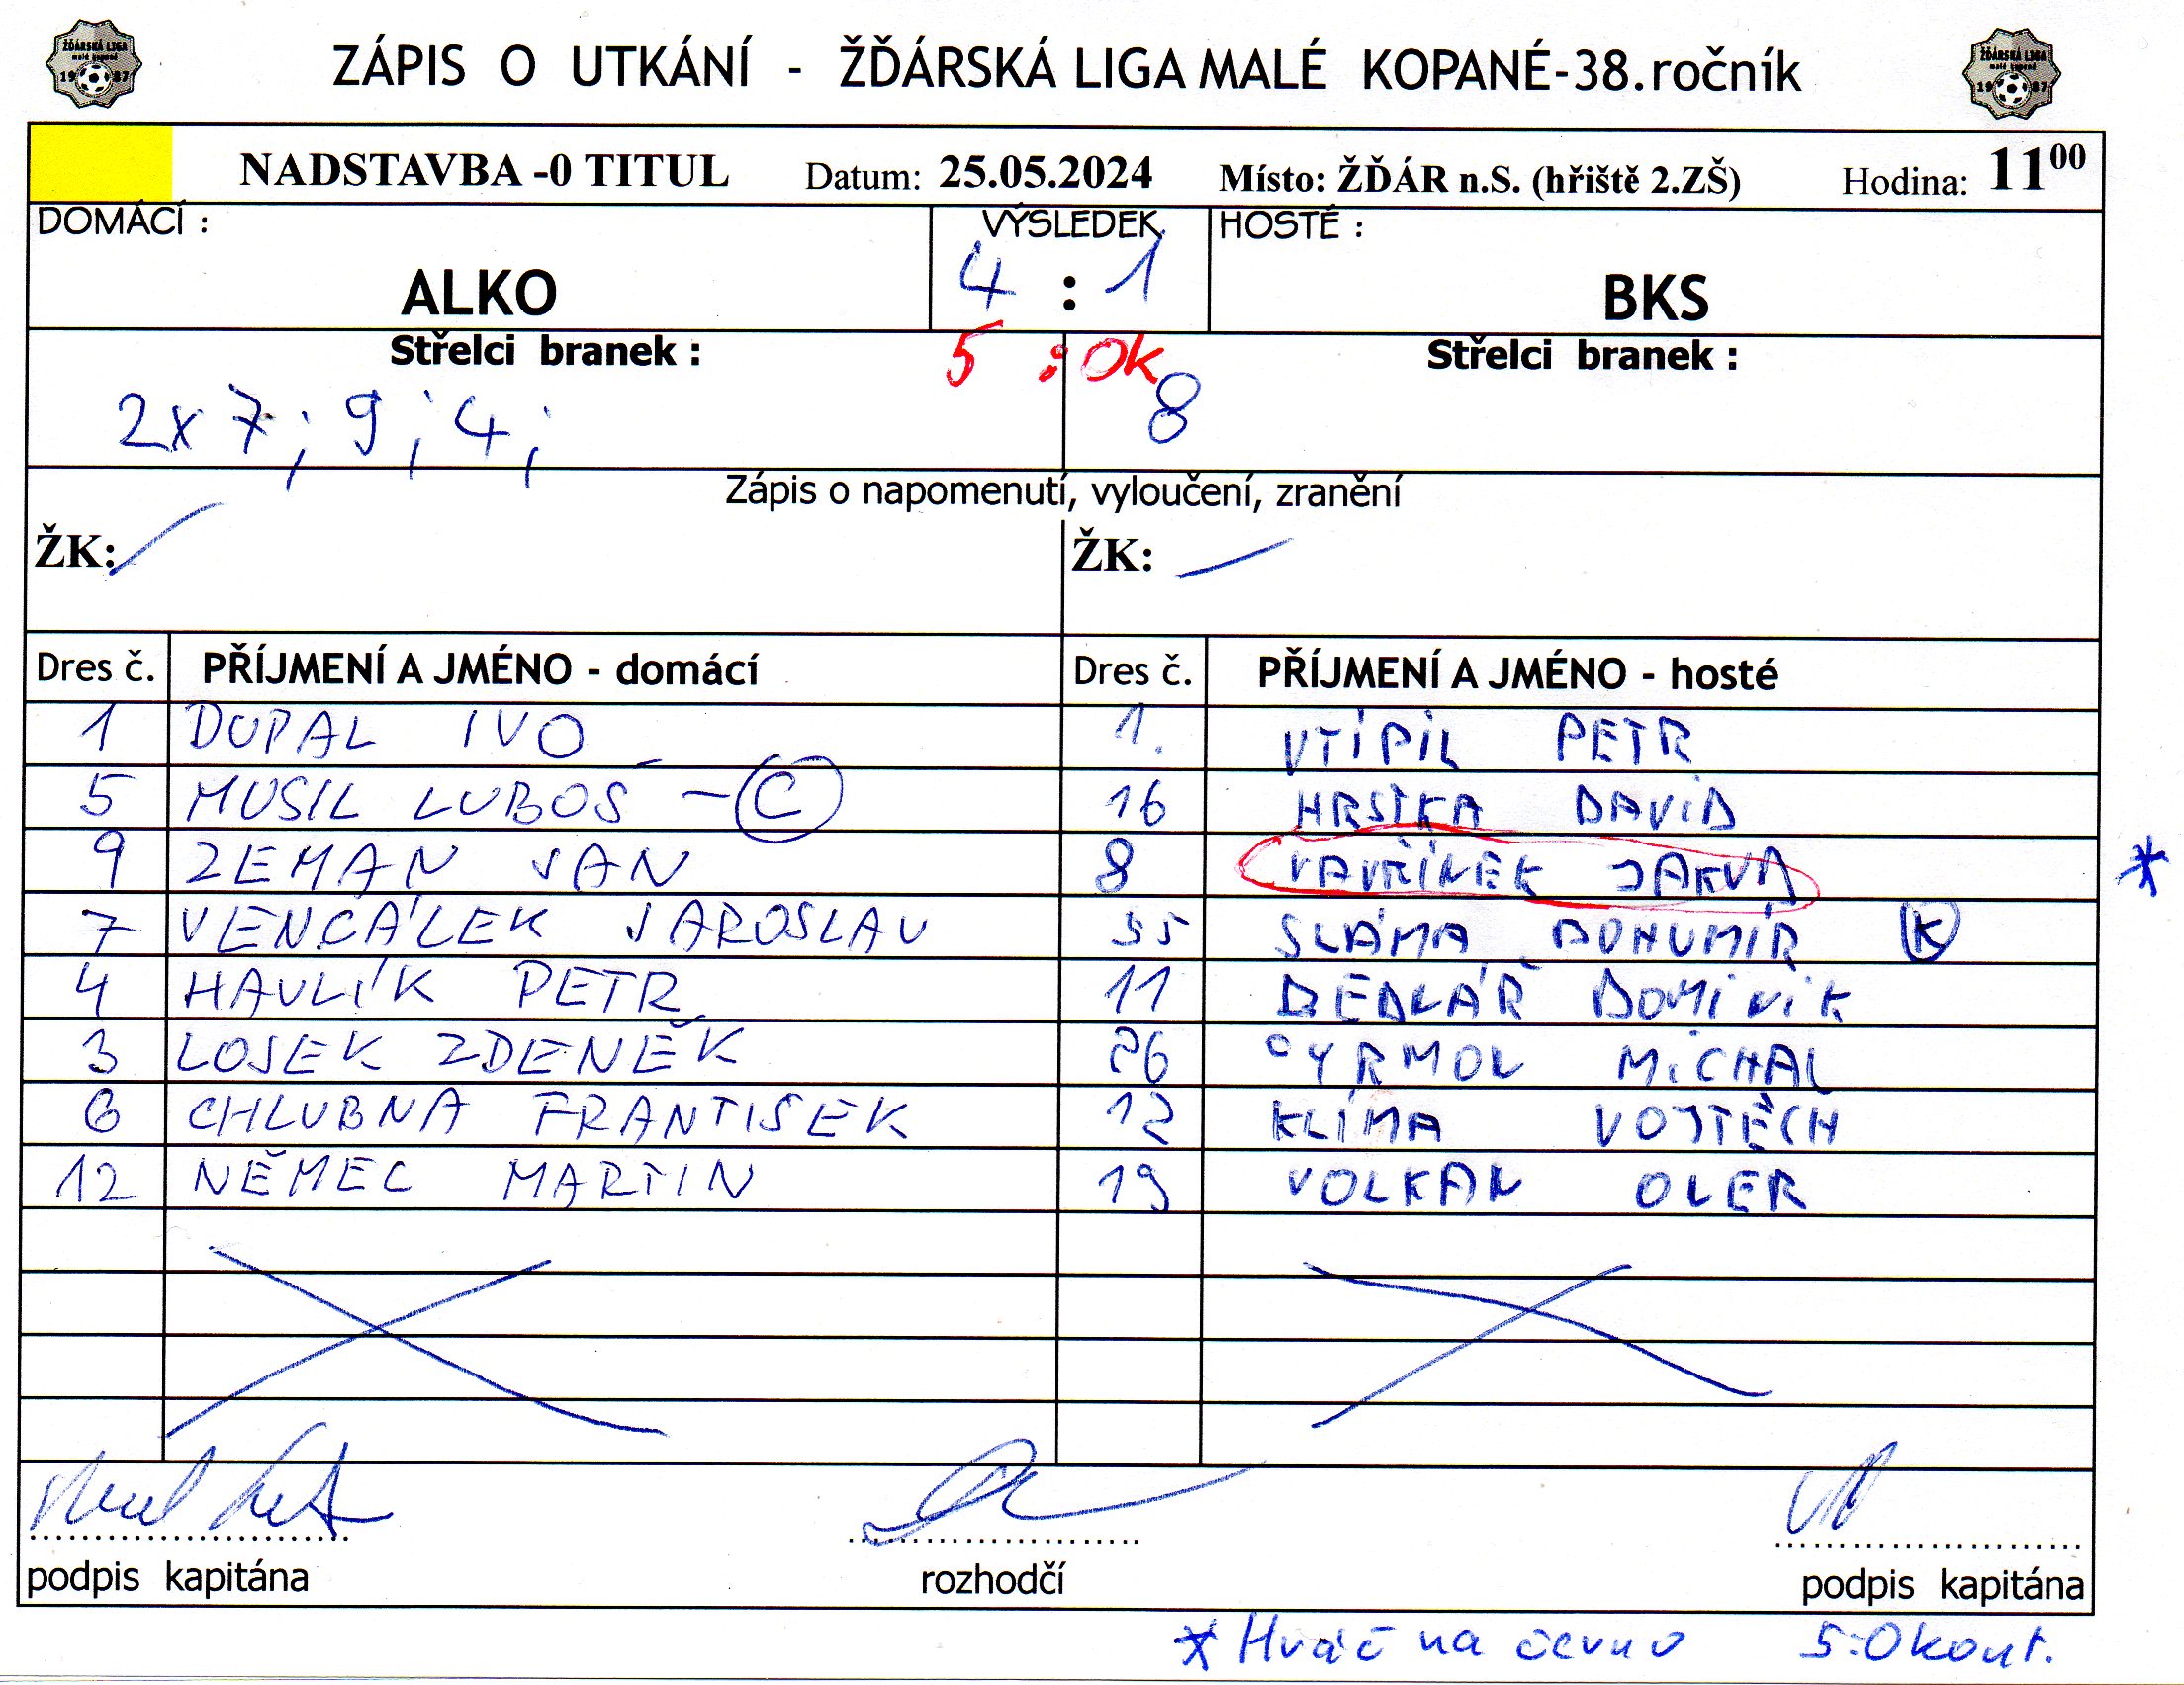 ŽĎÁRSKÁ LIGA
malé kopané
1987
ZÁPIS O UTKÁNÍ - ŽĎÁRSKÁ LIGA MALÉ KOPANÉ-38.ročník
ŽĎÁRSKÁ LIGA
malé kopané
1987
NADSTAVBA -0 TITUL Datum: 25.05.2024 Místo: ŽĎÁR n.S. (hřiště 2.ZŠ) Hodina: 11 00
DOMÁCÍ : VÝSLEDEK HOSTÉ :
ALKO 4 : 1 BKS
Střelci branek : 5 : 0k Střelci branek :
2x 7; 9; 4; 8
Zápis o napomenutí, vyloučení, zranění
ŽK: ŽK:
Dres č. PŘÍJMENÍ A JMÉNO - domácí Dres č. PŘÍJMENÍ A JMÉNO - hosté
1 DUPAL IVO 1. VTÍPIL PETR
5 MUSIL LUBOŠ - C 16 HRSTKA DAVID
9 ZEMAN JAN 8 VAVŘÍNEK JAKUB *
7 VENCÁLEK JAROSLAV 55 SLÁMA BOHUMÍR K
4 HAVLÍK PETR 11 BEDLÁŘ DOMINIK
3 LOSEK ZDENĚK 26 MICHAL
6 CHLUBNA FRANTISEK 12 KLÍMA VOJTĚCH
12 NĚMEC MARTIN 19 VOLKAN OLER
podpis kapitána rozhodčí podpis kapitána
* Hráč na černo 5:0 kont.